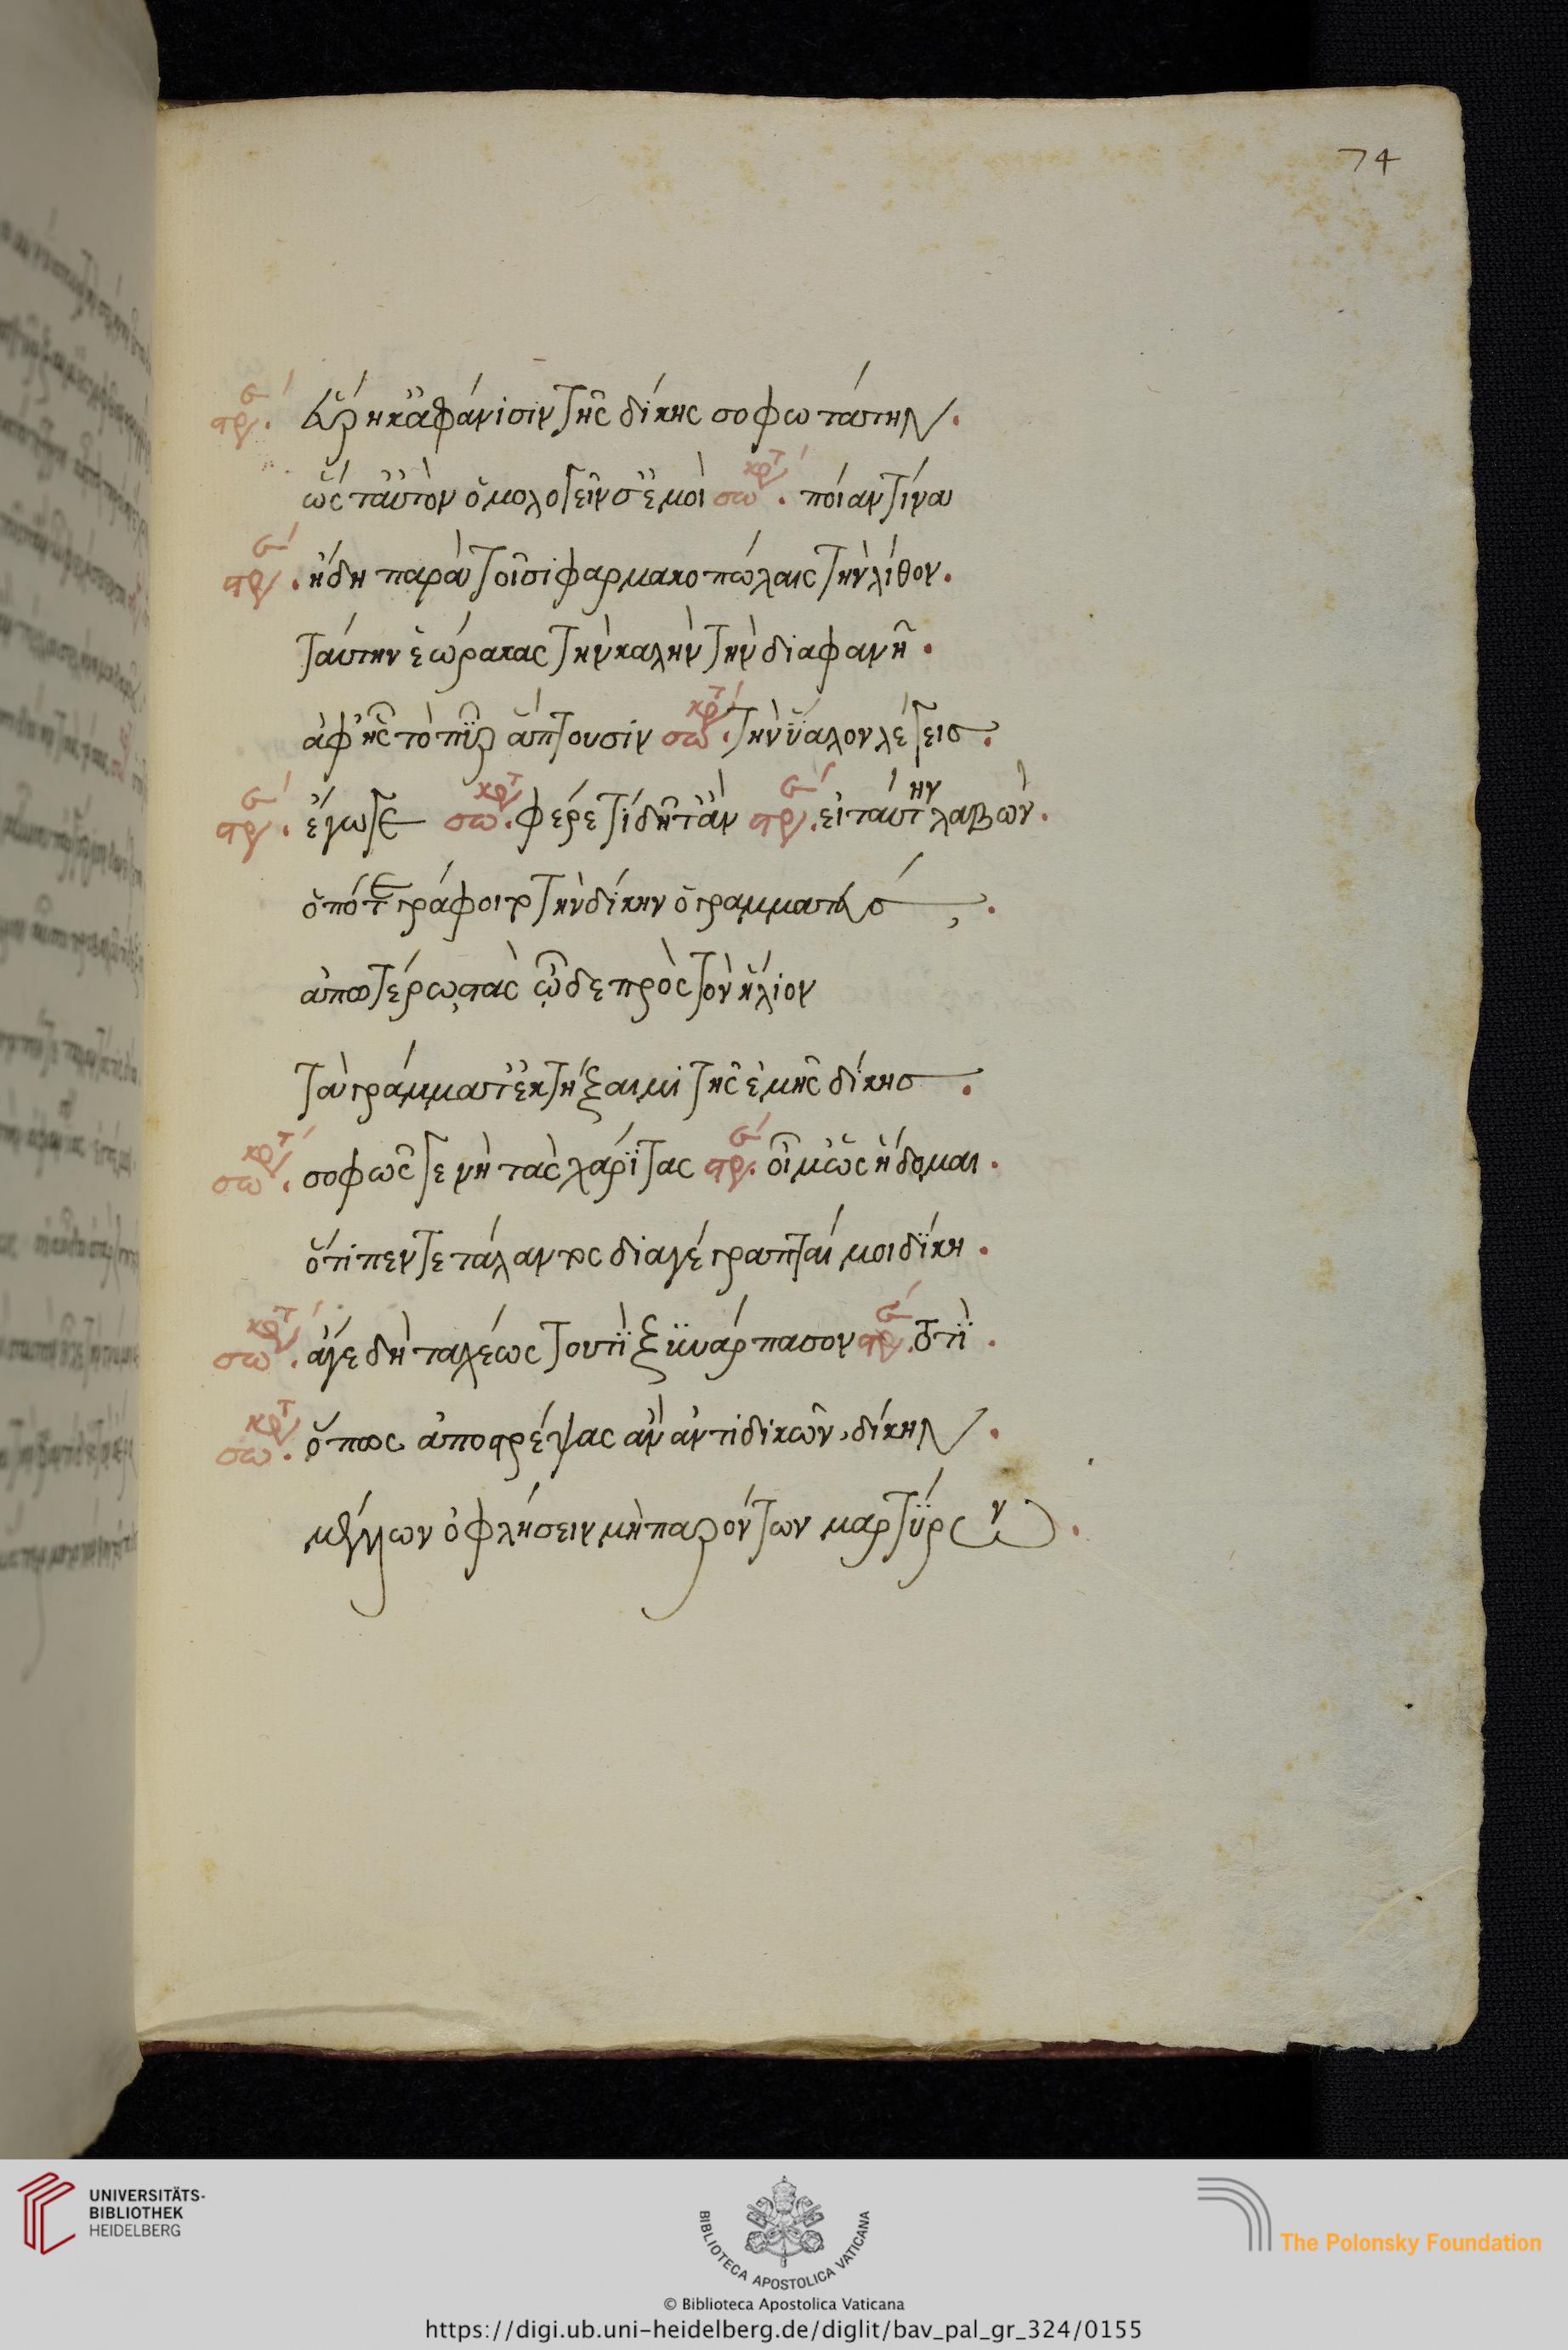 74
στρ. εὕρηκ' ἀφάνισιν τῆς δίκης σοφωτάτην.
ὥστ' αὐτὸν ὁμολογεῖν σ' ἐμοί σωκρτ. ποίαν τινα
στρ. ἤδη παρὰ τοῖσι φαρμακοπώλαις τὴν λίθον.
ταύτην ἑώρακας τὴν καλὴν τὴν διαφανῆ.
ἀφ' ἧς τὸ πῦρ ἅπτουσιν σωκρτ. τὴν ὕαλον λέγεις.
στρ. ἔγωγε σωκρτ. φέρε τί δῆτ' ἂν στρ. εἰ ταύτην λαβών.
ὁπότε γράφοιτο τὴν δίκην ὁ γραμματεύς.
ἀπωτέρω στὰς ὧδε πρὸς τὸν ἥλιον
τὰ γράμματ' ἐκτήξαιμι τῆς ἐμῆς δίκης.
σωκρτ. σοφῶς γε νὴ τὰς χάριτας στρ. οἴμ' ὡς ἥδομαι.
ὅτι πεντετάλαντος διαγέγραπταί μοι δίκη.
σωκρτ. ἄγε δὴ ταχέως τουτὶ ξυνάρπασον στρ. τὸ τί.
σωκρτ. ὅπως ἀποστρέψας ἂν ἀντιδικῶν, δίκην.
μέλλων ὀφλήσειν μὴ παρόντων μαρτύρων.
UNIVERSITÄTS-
BIBLIOTHEK
HEIDELBERG
BIBLIOTECA APOSTOLICA VATICANA
The Polonsky Foundation
© Biblioteca Apostolica Vaticana
https://digi.ub.uni-heidelberg.de/diglit/bav_pal_gr_324/0155